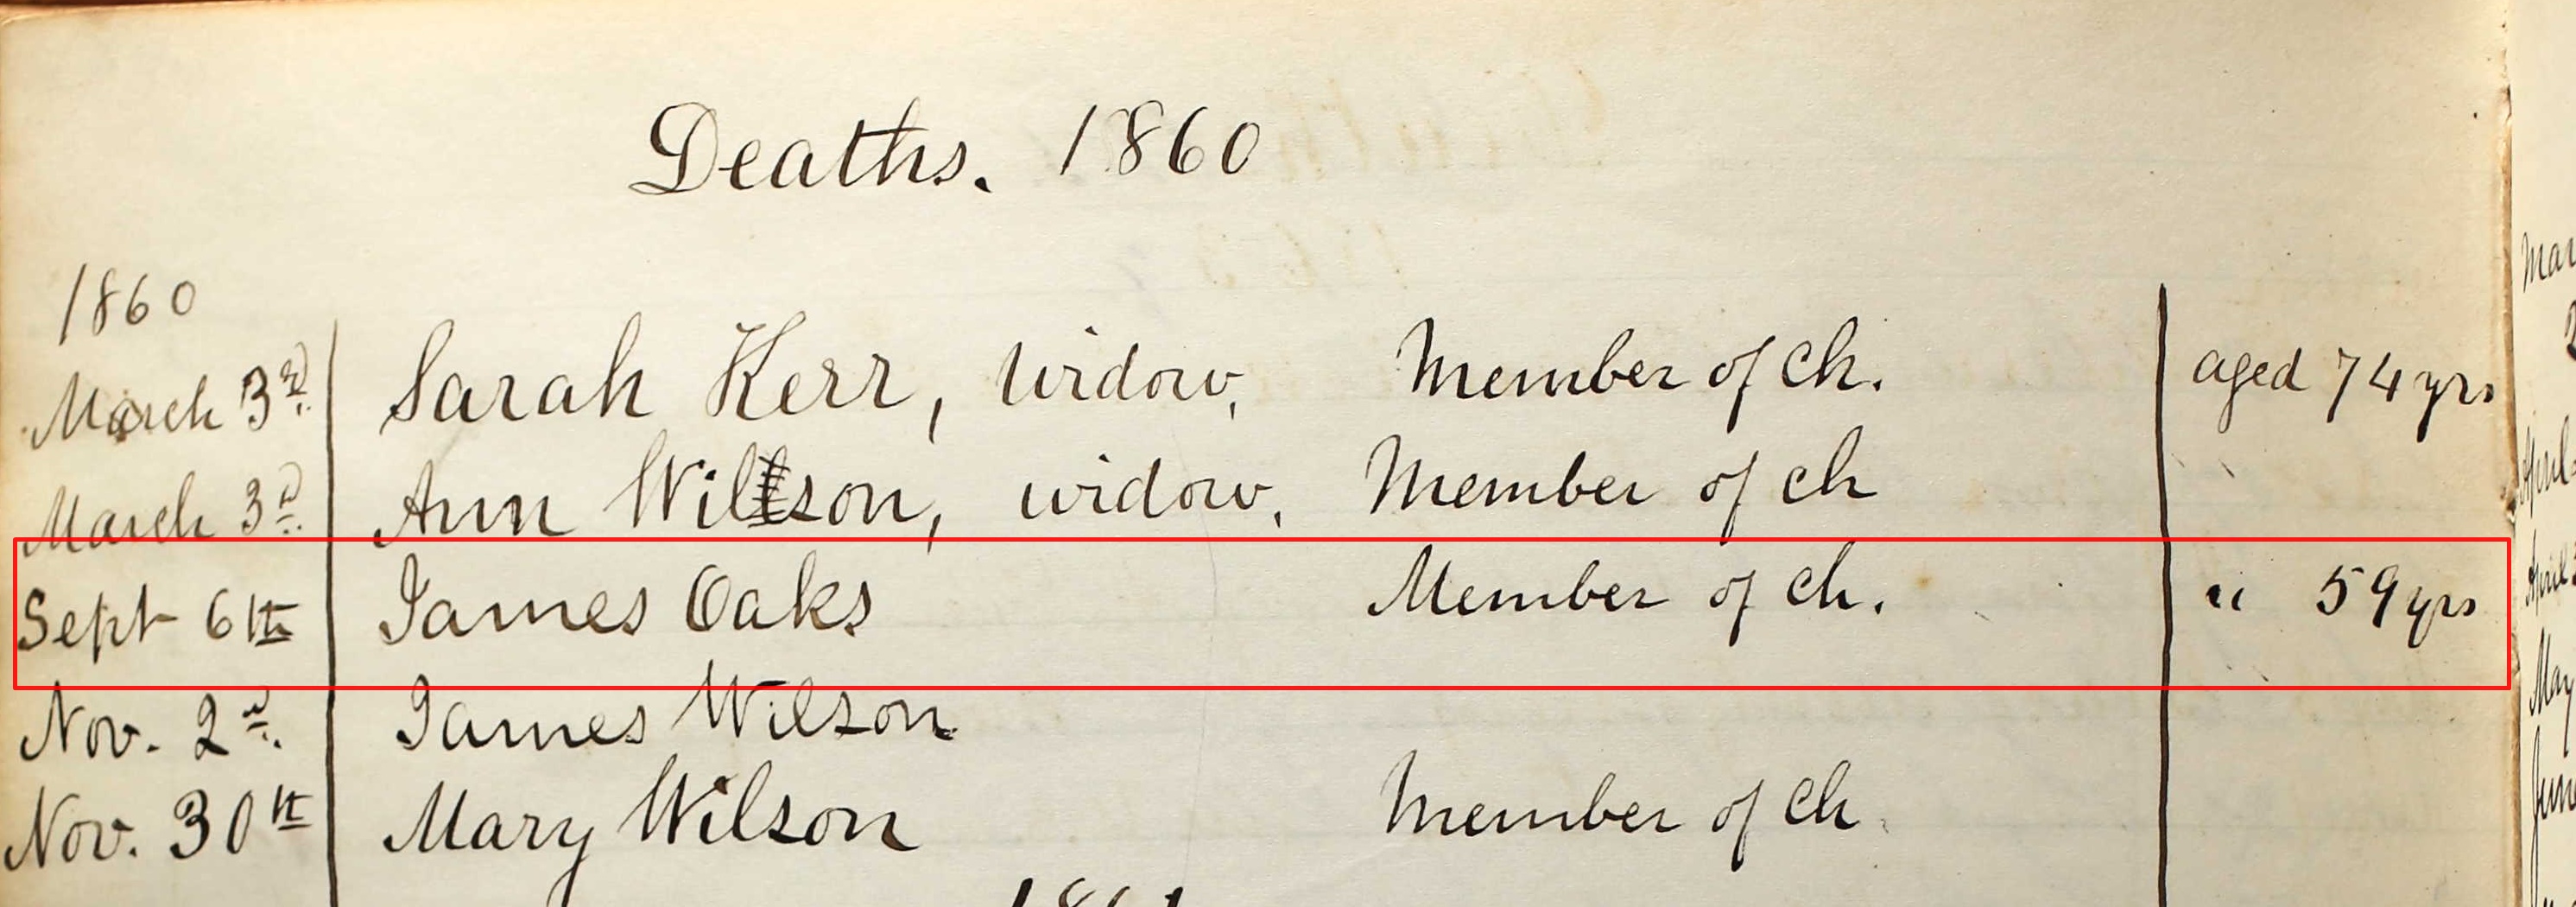 Deaths. 1860
1860
March 3rd Sarah Kerr, widow, Member of ch. aged 74 yrs
March 3d Ann Wilson, widow. Member of ch
Sept 6th James Oaks Member of ch. " 59 yrs
Nov. 2d. James Wilson
Nov. 30th Mary Wilson Member of ch.
1861